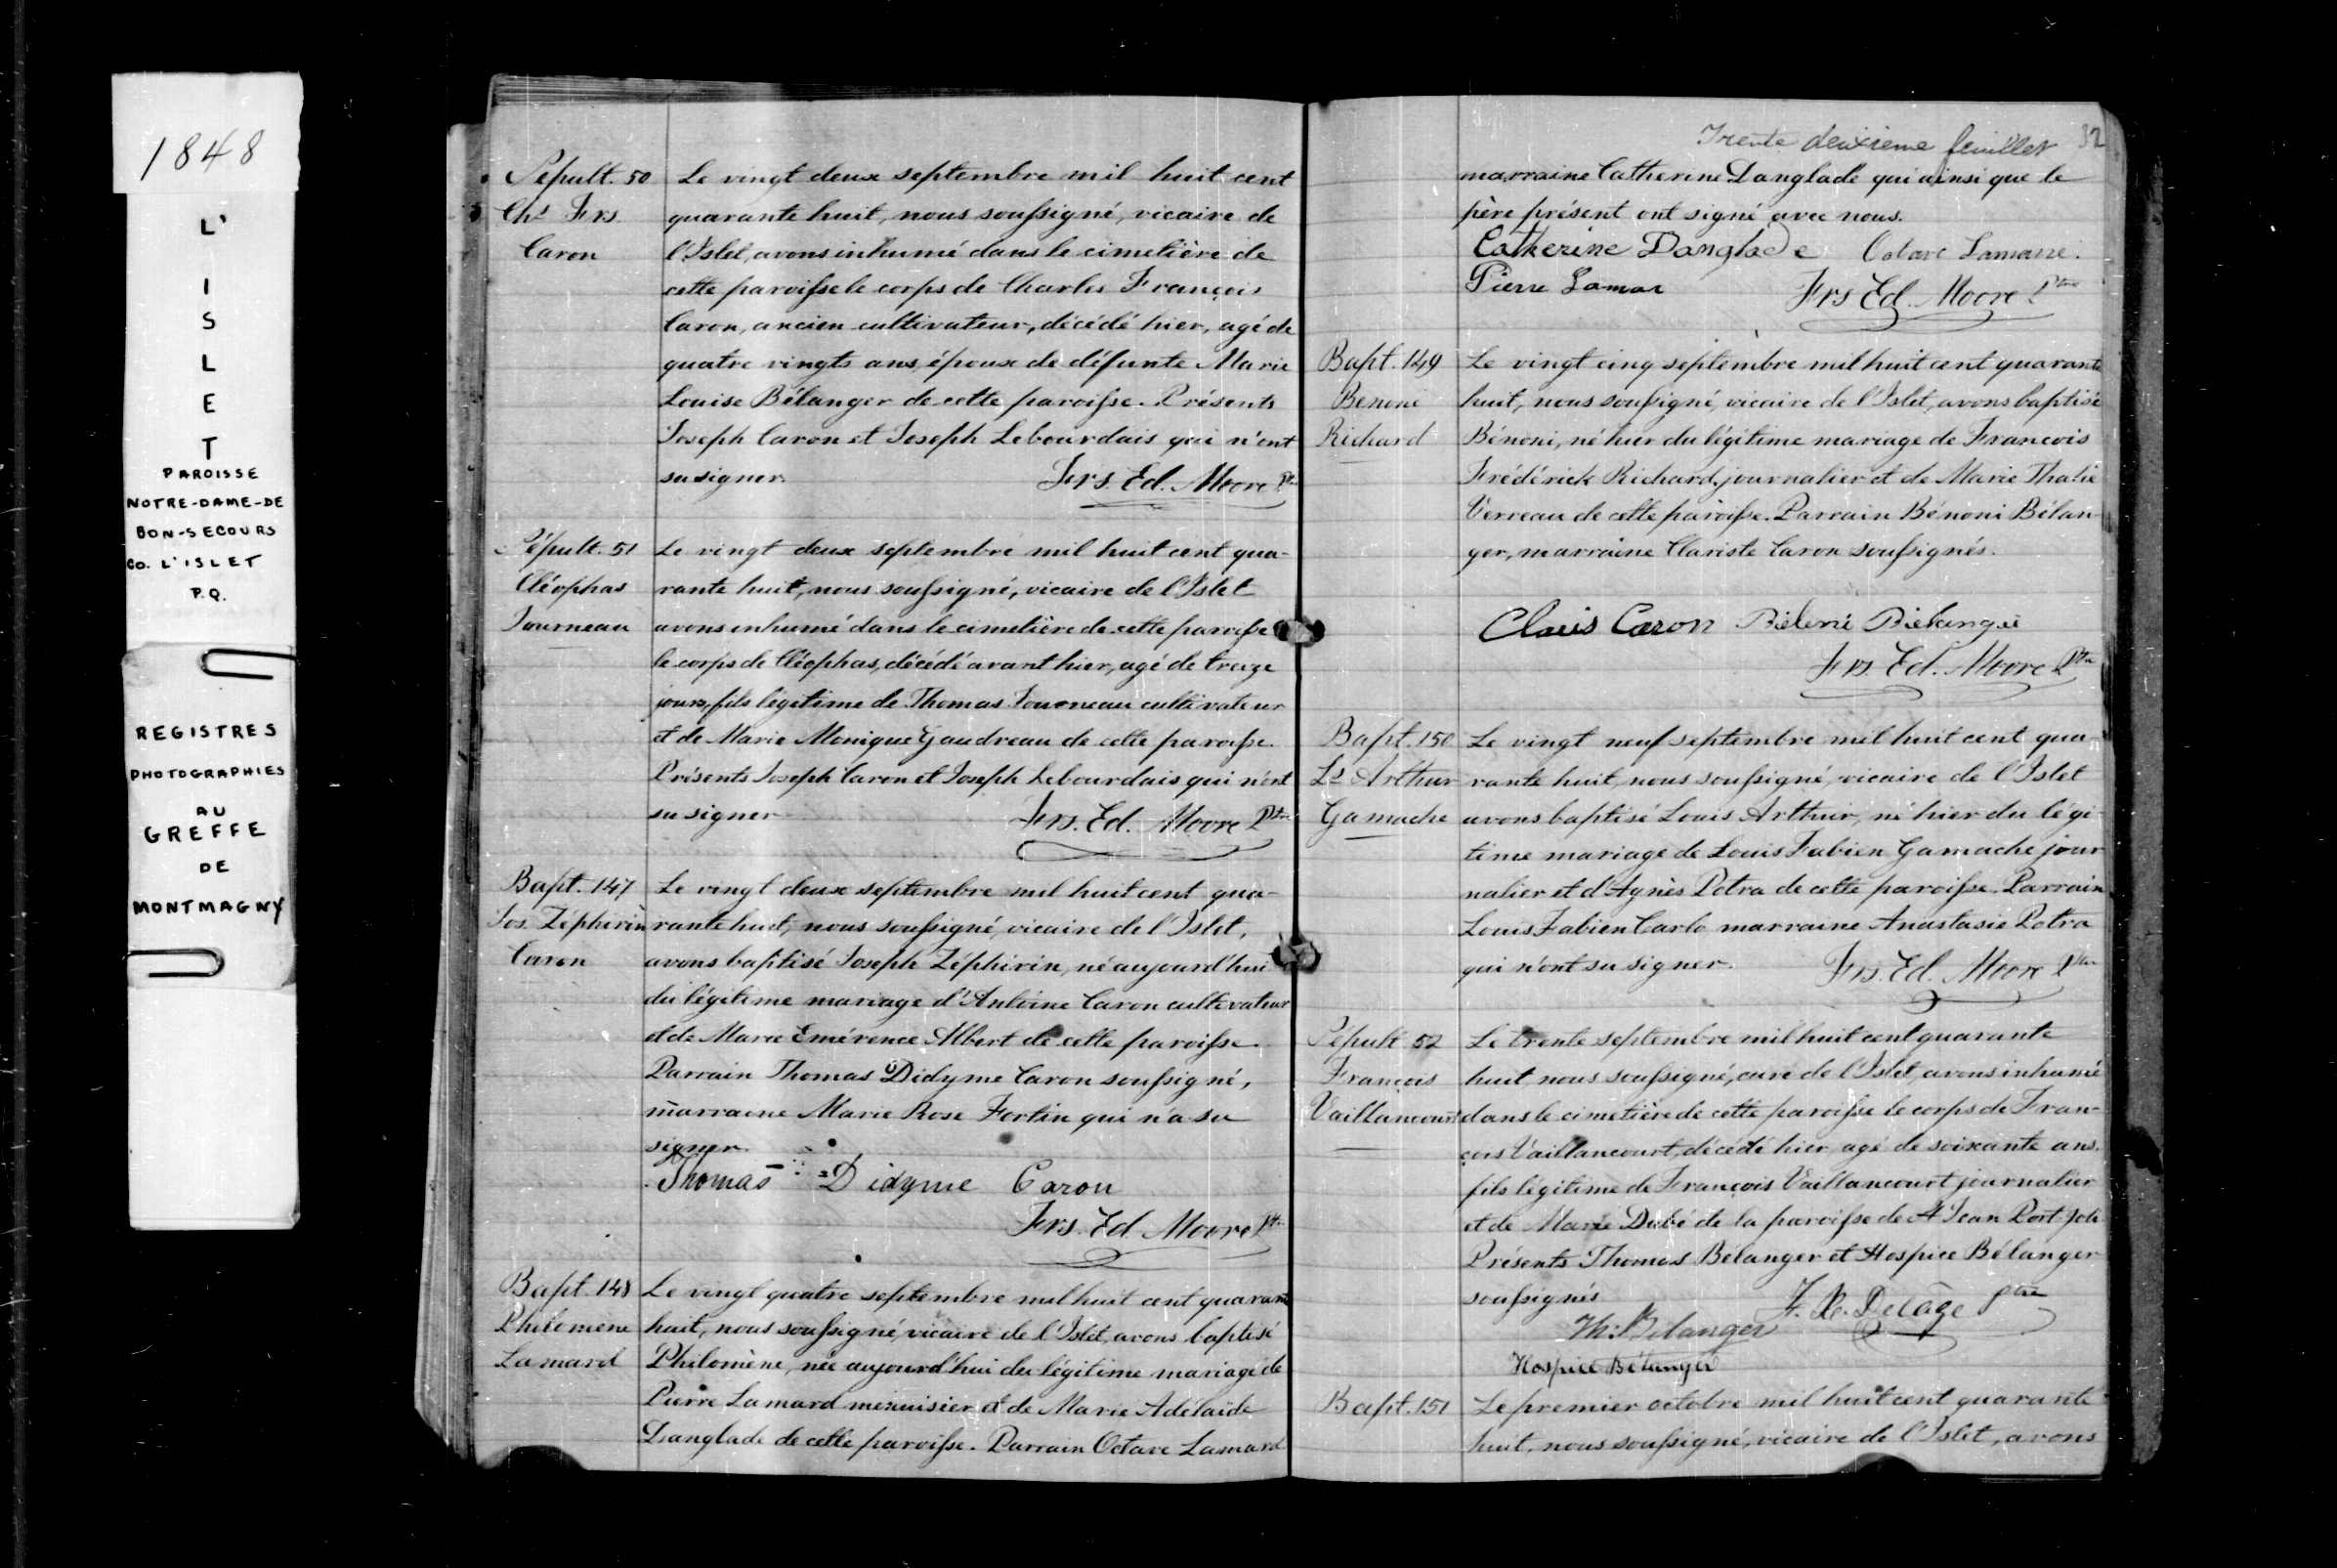 1848
L'
I
S
L
E
T
PAROISSE
NOTRE-DAME-DE
BON-SECOURS
CO. L'ISLET
P.Q.
REGISTRES
PHOTOGRAPHIES
AU
GREFFE
DE
MONTMAGNY
Sépult. 50
Chs Frs
Caron
Le vingt deux septembre mil huit cent
quarante huit, nous soussigné, vicaire de
l'Islet, avons inhumé dans le cimetière de
cette paroisse le corps de Charles François
Caron, ancien cultivateur, décédé hier, agé de
quatre vingts ans, époux de défunte Marie
Louise Bélanger de cette paroisse. Présents
Joseph Caron et Joseph Lebourdais qui n'ont
su signer.
Frs. Ed. Moore Ptre
Sépult. 51
Cléophas
Fourneau
Le vingt deux septembre mil huit cent qua-
rante huit, nous soussigné, vicaire de l'Islet
avons inhumé dans le cimetière de cette paroisse
le corps de Cléophas, décédé avant hier, agé de treize
jours, fils légitime de Thomas Fourneau cultivateur
et de Marie Monique Gaudreau de cette paroisse.
Présents Joseph Caron et Joseph Lebourdais qui n'ont
su signer
Frs. Ed. Moore Ptre
Bapt. 147
Jos. Zéphirin
Caron
Le vingt deux septembre mil huit cent qua-
rante huit, nous soussigné, vicaire de l'Islet,
avons baptisé Joseph Zéphirin, né aujourd'hui
du légitime mariage d'Antoine Caron cultivateur
et de Marie Emérence Albert de cette paroisse.
Parrain Thomas Didyme Caron soussigné,
marraine Marie Rose Fortin qui n'a su
signer.
Thomas Didyme Caron
Frs. Ed. Moore Ptre
Bapt. 148
Philomène
Lamard
Le vingt quatre septembre mil huit cent quarante
huit, nous soussigné, vicaire de l'Islet, avons baptisé
Philomène, née aujourd'hui du légitime mariage de
Pierre Lamard menuisier et de Marie Adélaïde
Danglade de cette paroisse. Parrain Octave Lamard
Trente deuxième feuillet 32
marraine Catherine Danglade qui ainsi que le
père présent ont signé avec nous.
Catherine Danglade Octave Lamarre
Pierre Lamar
Frs Ed. Moore Ptre
Bapt. 149
Benoni
Richard
Le vingt cinq septembre mil huit cent quarante
huit, nous soussigné, vicaire de l'Islet, avons baptisé
Bénoni, né hier du légitime mariage de François
Frédérick Richard journalier et de Marie Thalie
Verreau de cette paroisse. Parrain Bénoni Bélan-
ger, marraine Clariste Caron soussignés.
Claris Caron
Frs. Ed. Moore Ptre
Bapt. 150
Ls Arthur
Gamache
Le vingt neuf septembre mil huit cent qua-
rante huit, nous soussigné, vicaire de l'Islet
avons baptisé Louis Arthur, né hier du légi-
time mariage de Louis Fabien Gamache jour
nalier et d'Agnès Potra de cette paroisse. Parrain
Louis Fabien Carlo marraine Anastasie Potra
qui n'ont su signer.
Frs. Ed. Moore Ptre
Sépult 52
François
Vaillancourt
Le trente septembre mil huit cent quarante
huit nous soussigné, curé de l'Islet, avons inhumé
dans le cimetière de cette paroisse le corps de Fran-
çois Vaillancourt, décédé hier, agé de soixante ans.
fils légitime de François Vaillancourt journalier
et de Marie Dubé de la paroisse de St Jean Port-joli
Présents Thomas Bélanger et Hospice Bélanger
soussignés
F. X. Delâge Ptre
Th. Belanger
Hospice Bélanger
Bapt. 151
Le premier octobre mil huit cent quarante
huit, nous soussigné, vicaire de l'Islet, avons